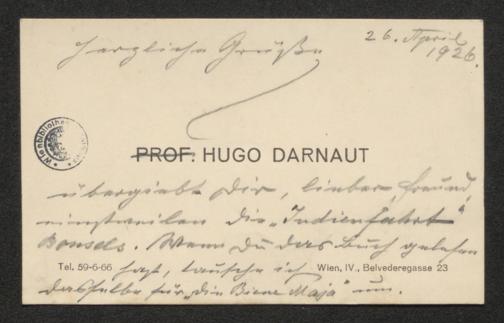 26. April
1926.
Herzliche Grüße
Wienbibliothek
PROF. HUGO DARNAUT
übergiebt Dir, lieber Freund,
einstweilen die „Indienfahrt"
Bonsels. Wenn Du das Buch gelesen
Tel. 59-6-66 hast, tausche ich Wien, IV., Belvederegasse 23
dasselbe für „die Biene Maja" um.